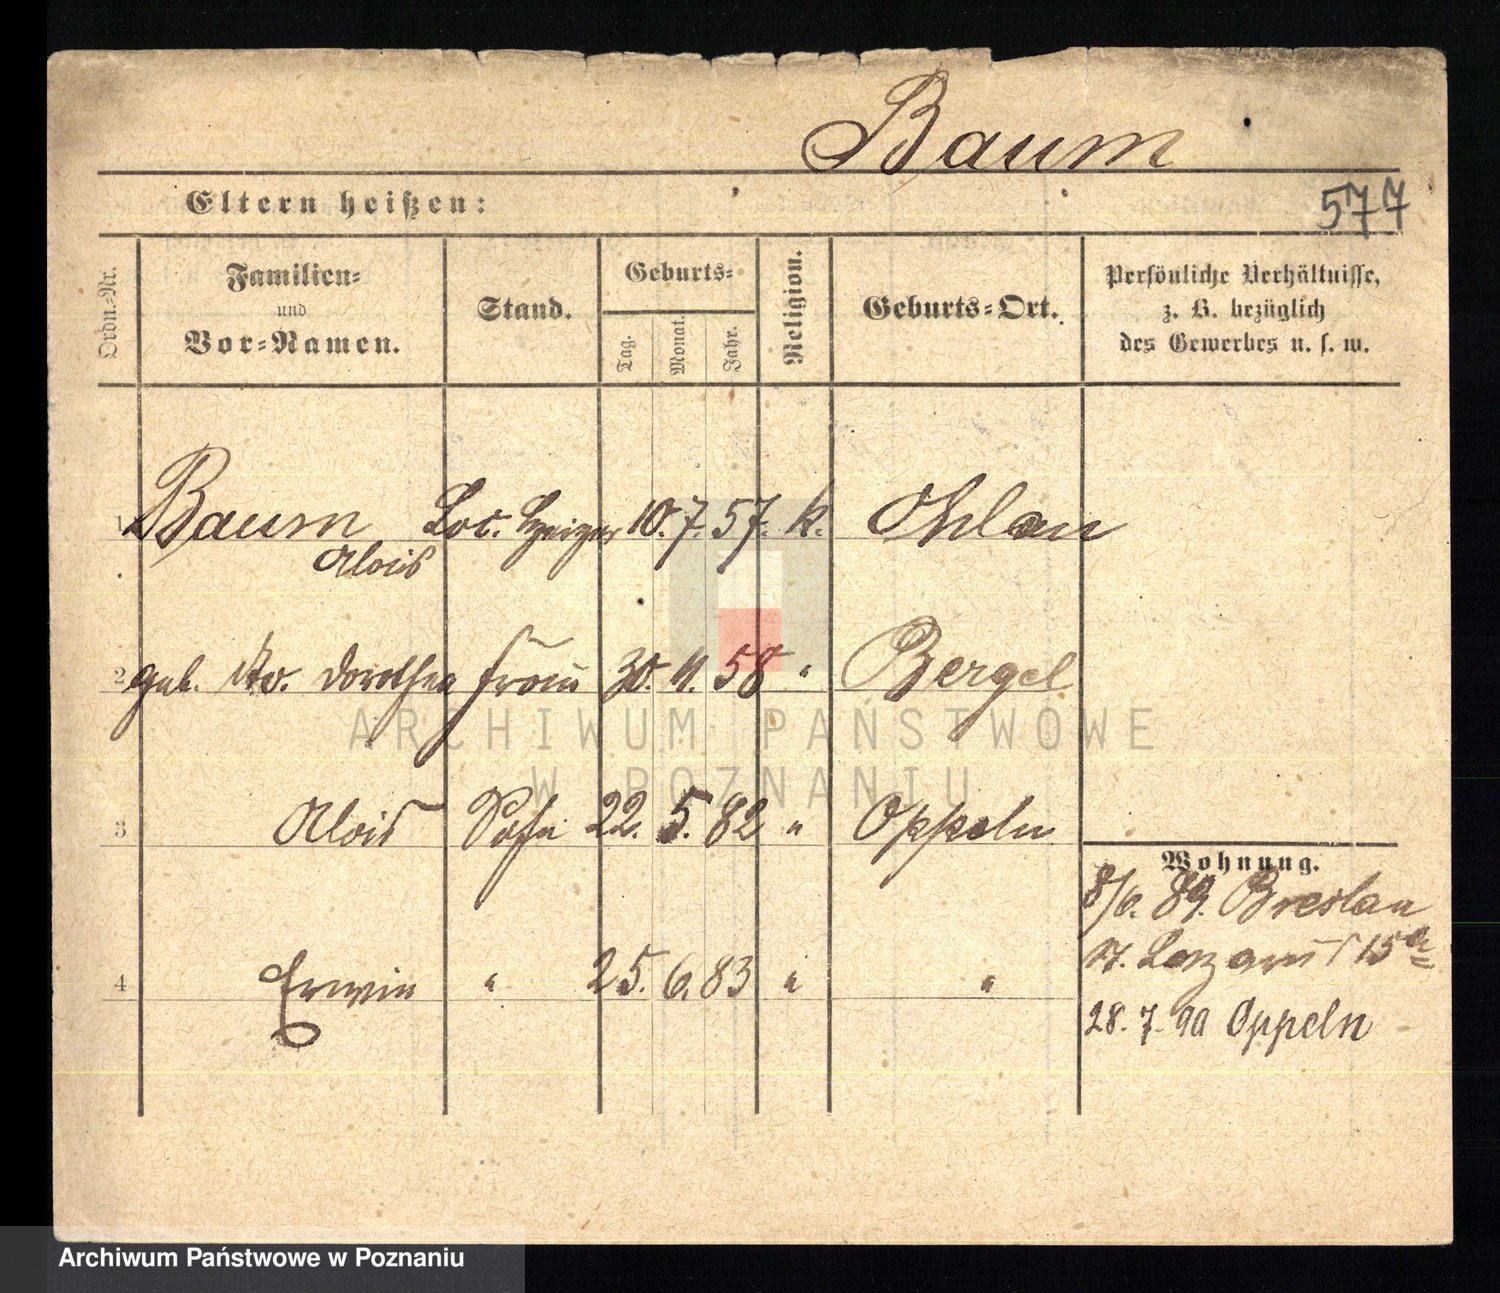 Baum
Eltern heißen:
577
Ordn.-Nr.
Familien-
und
Vor-Namen.
Stand.
Geburts-
Tag.
Monat.
Jahr.
Religion.
Geburts-Ort.
Persönliche Verhältnisse,
z. B. bezüglich
des Gewerbes u. s. w.
1 Baum Loc. Heizer 10. 7. 57. k. Ohlau
Alois
2 geb. Dorothea Frau 30. 11. 58 " Bergel
ARCHIWUM PAŃSTWOWE
W POZNANIU
3 Alois Söhn 22. 5. 82 " Oppeln
Wohnung.
8/6. 89. Breslau
4 Erwin " 25. 6. 83 " "
St. Lazarus 15a
28. 7. 90 Oppeln
Archiwum Państwowe w Poznaniu